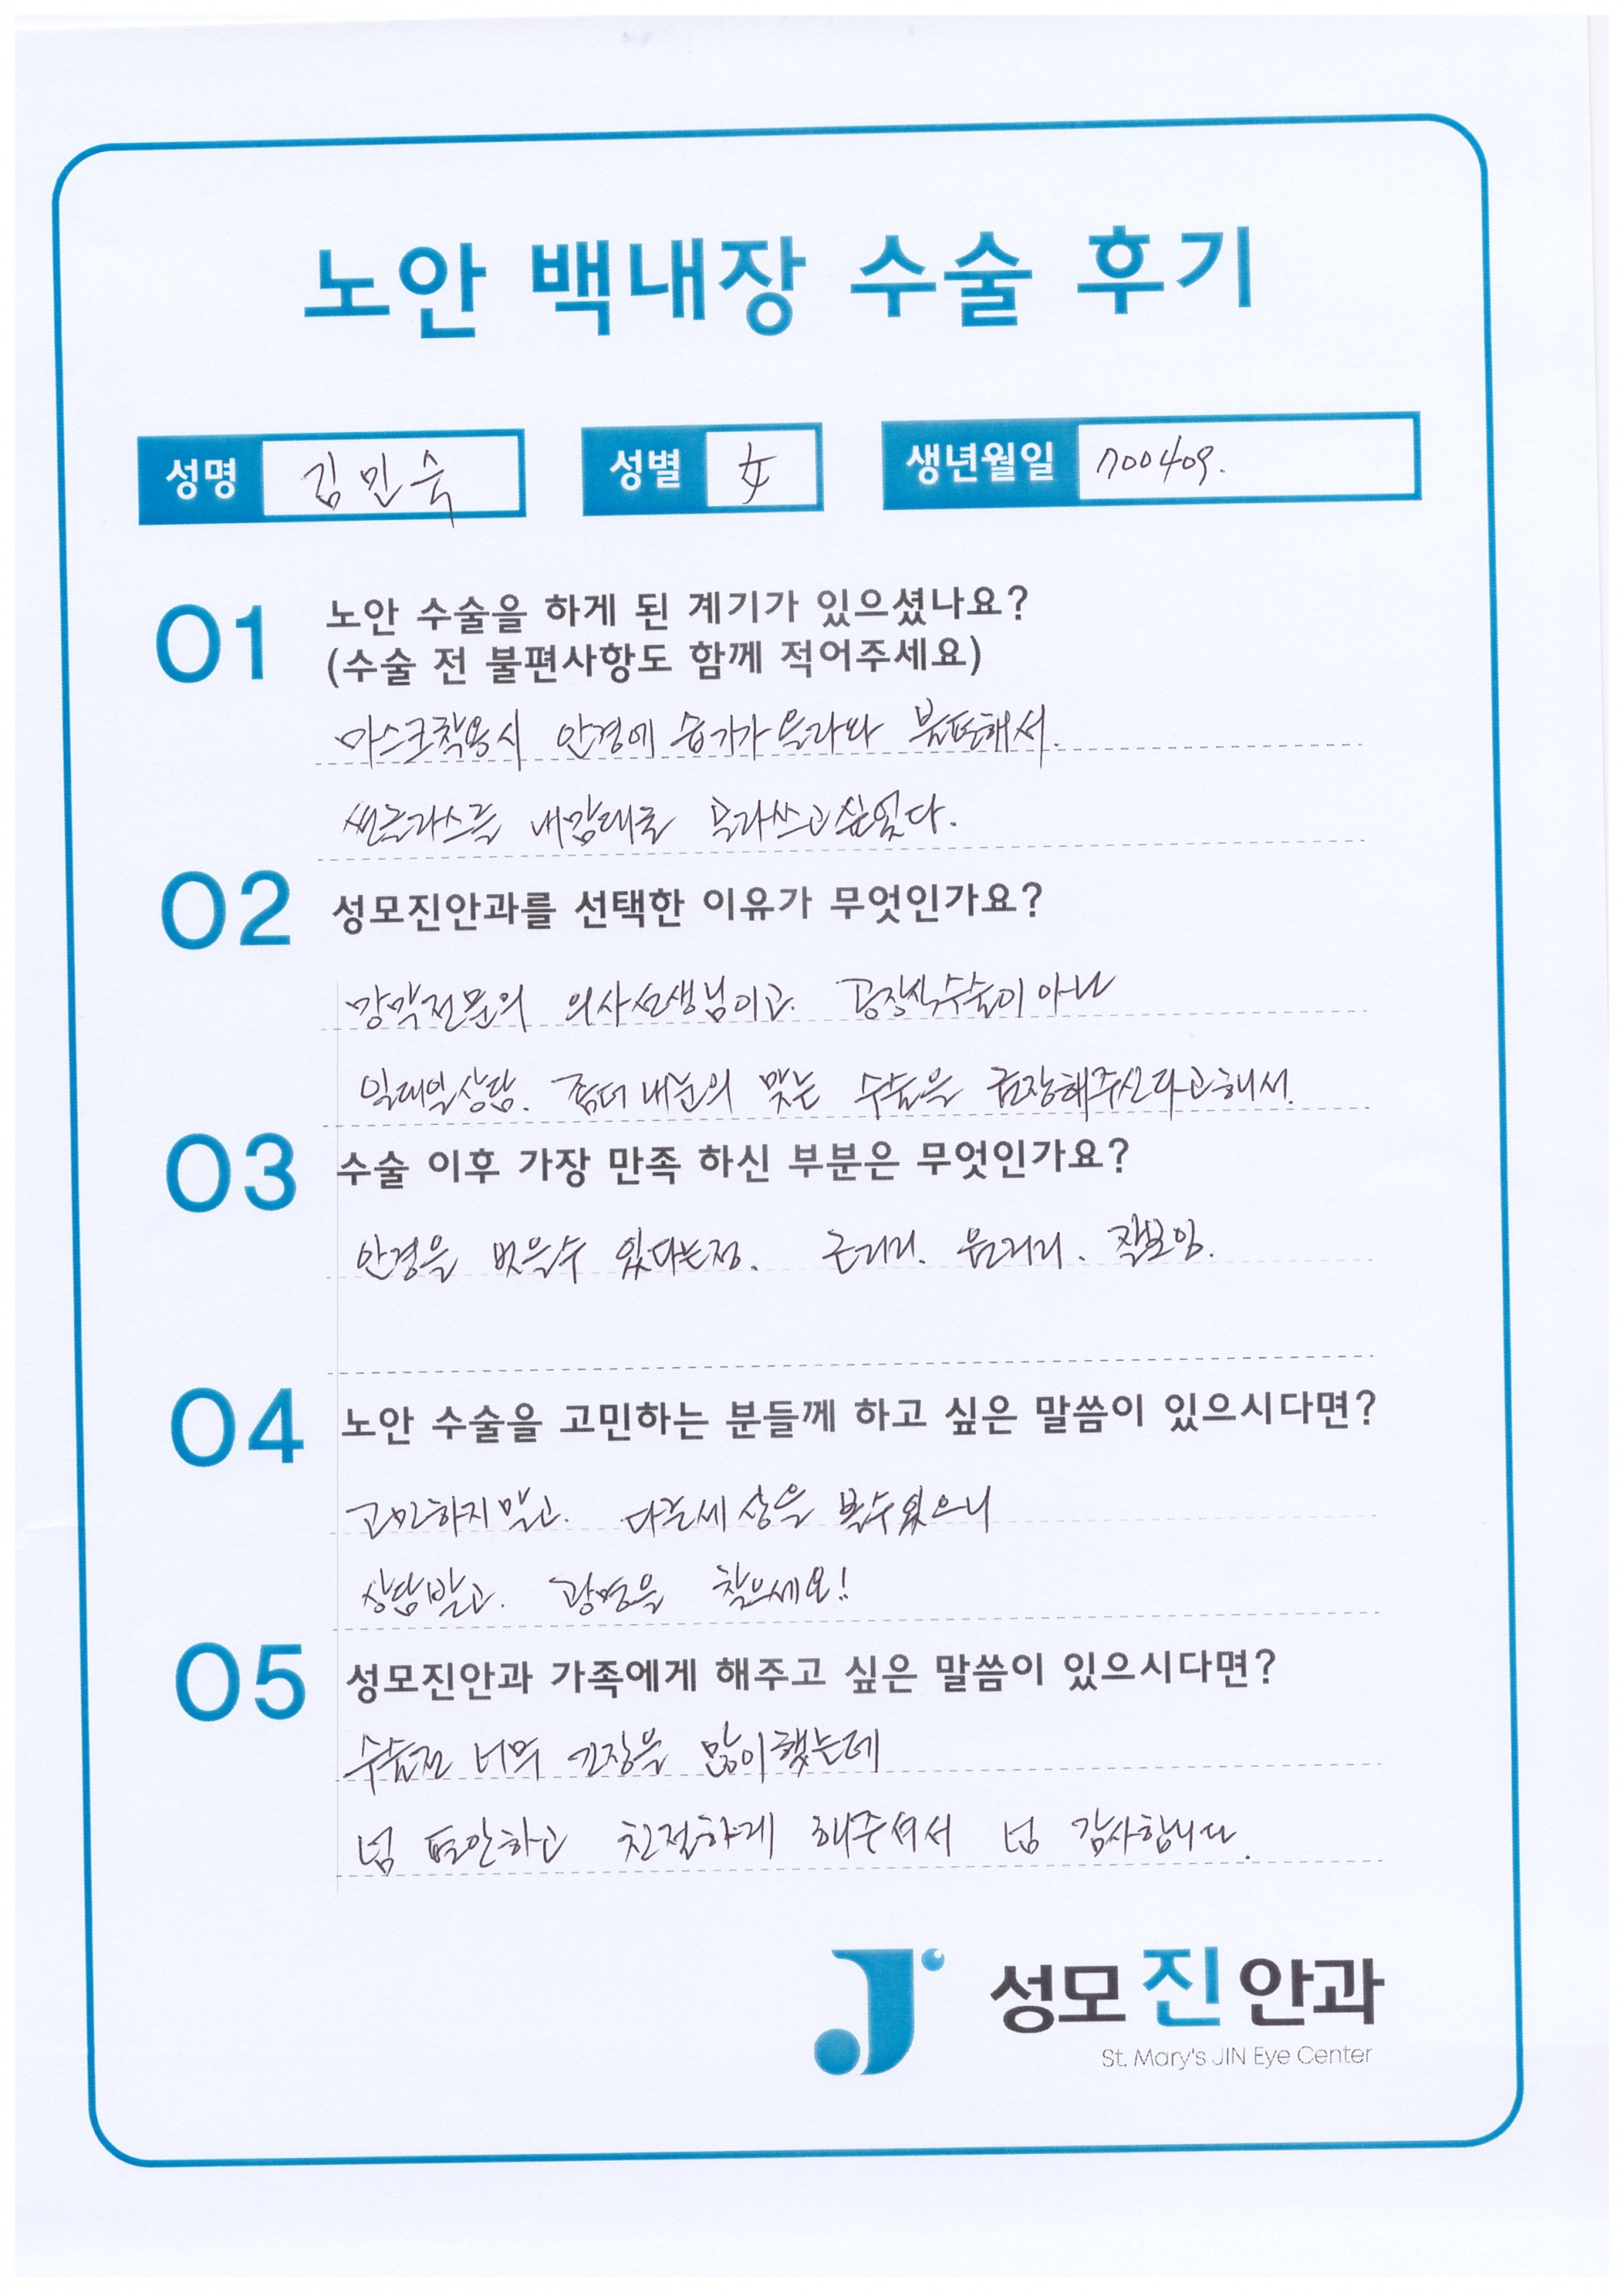 노안 백내장 수술 후기
성명 김민숙 성별 女 생년월일 700409.
01 노안 수술을 하게 된 계기가 있으셨나요?
(수술 전 불편사항도 함께 적어주세요)
마스크착용시 안경에 습기가 올라와 불편해서.
썬글라스를 내맘대로 골라쓰고싶었다.
02 성모진안과를 선택한 이유가 무엇인가요?
망막전문의 의사선생님이고. 공장식수술이 아닌
일대일상담. 좀더 내눈의 맞는 수술을 권장해주신다고해서.
03 수술 이후 가장 만족 하신 부분은 무엇인가요?
안경을 벗을수 있다는점. 근거리. 원거리. 잘보임.
04 노안 수술을 고민하는 분들께 하고 싶은 말씀이 있으시다면?
고민하지말고. 다른세상을 볼수있으니
상담받고. 광명을 찾으세요!
05 성모진안과 가족에게 해주고 싶은 말씀이 있으시다면?
수술전 너무 긴장을 많이했는데
넘 편안하고 친절하게 해주셔서 넘 감사합니다.
성모진안과
St. Mary's JIN Eye Center